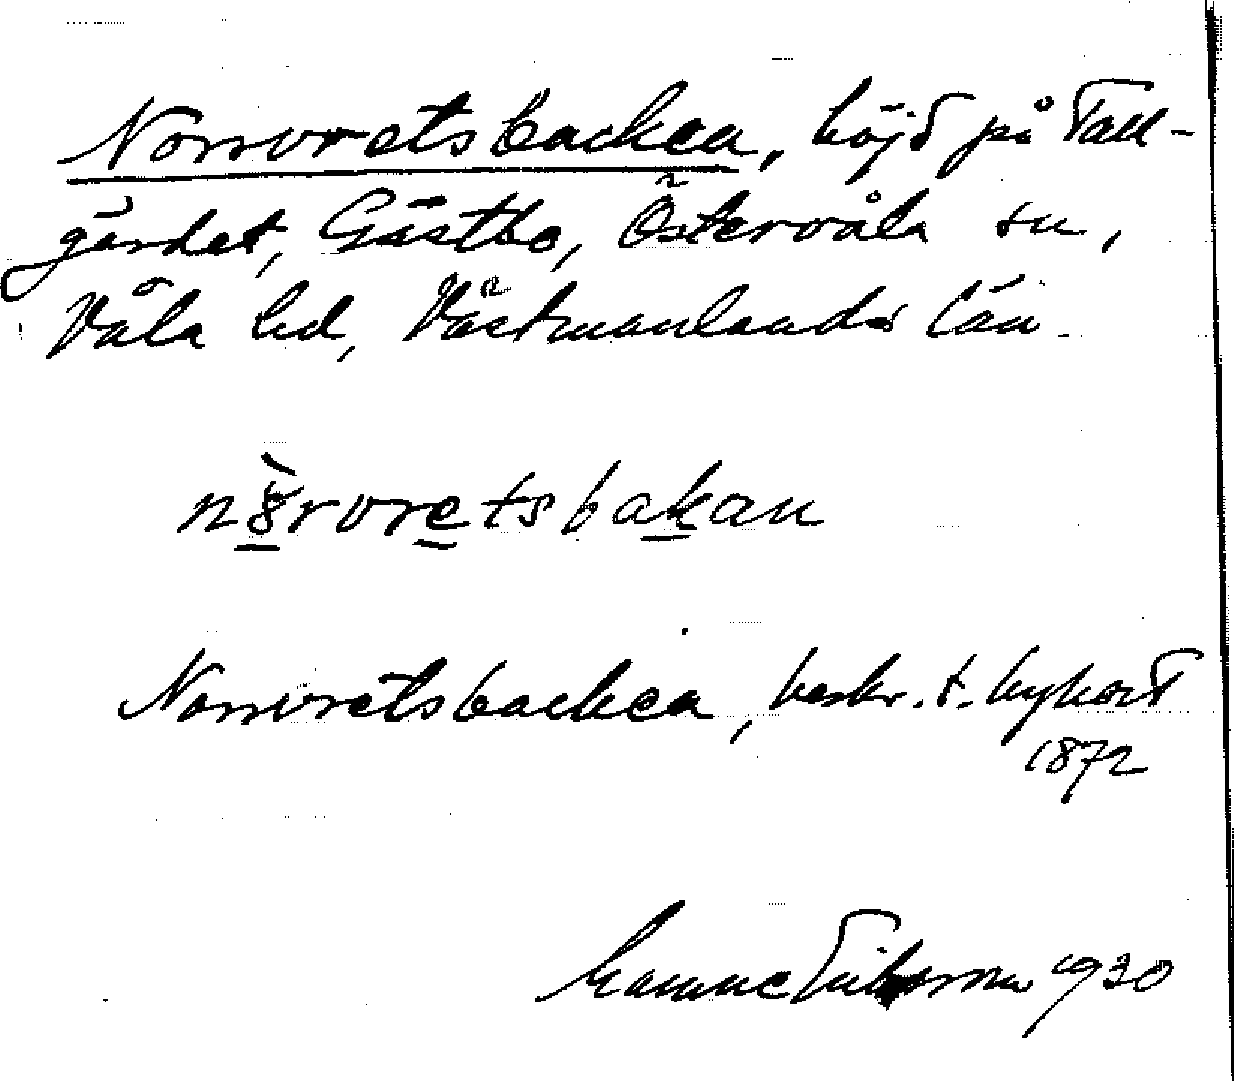 Norrvretsbacken, höjd på Tall-
gärdet, Gästbo, Östervåla sn,
Våla hd, Västmanlands län.
nårvretsbakan
Norrvretsbacken, beskr. t. hykart
1872
1930